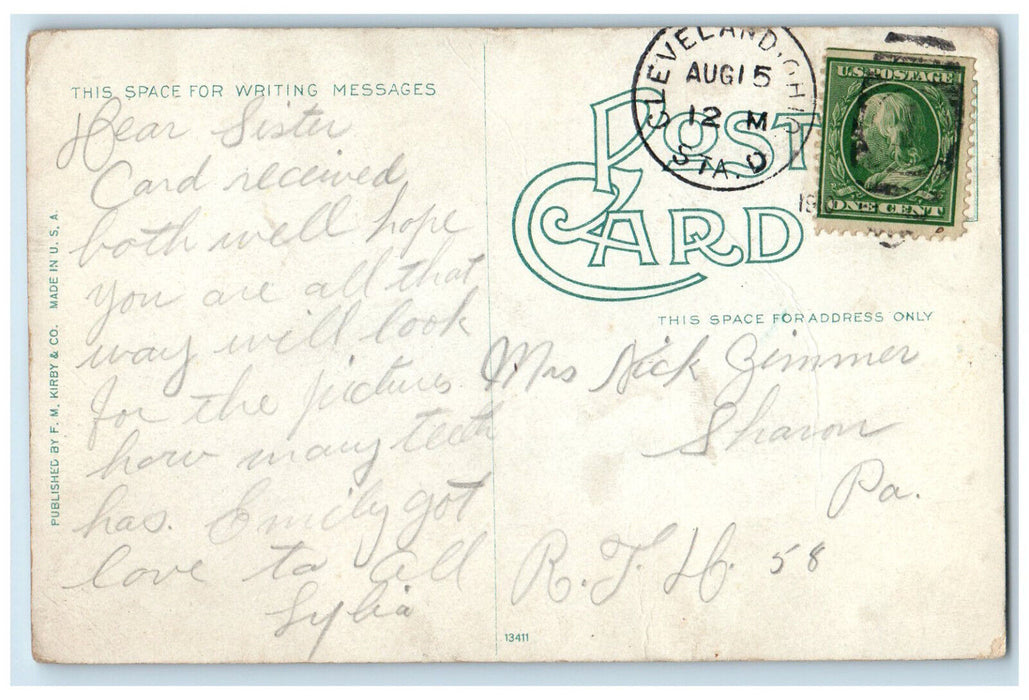 THIS SPACE FOR WRITING MESSAGES
Dear Sister
Card received
both well hope
you are all that
way will look
for the pictures
how many teeth
has. Emily got
love to all
PUBLISHED BY F. M. KIRBY & CO. MADE IN U. S. A.
POST
CARD
CLEVELAND, OHIO
AUG 15
12 M
STA. D
19
U.S. POSTAGE
ONE CENT
THIS SPACE FOR ADDRESS ONLY
Mrs Nick Zimmer
Sharon
Pa.
58
13411